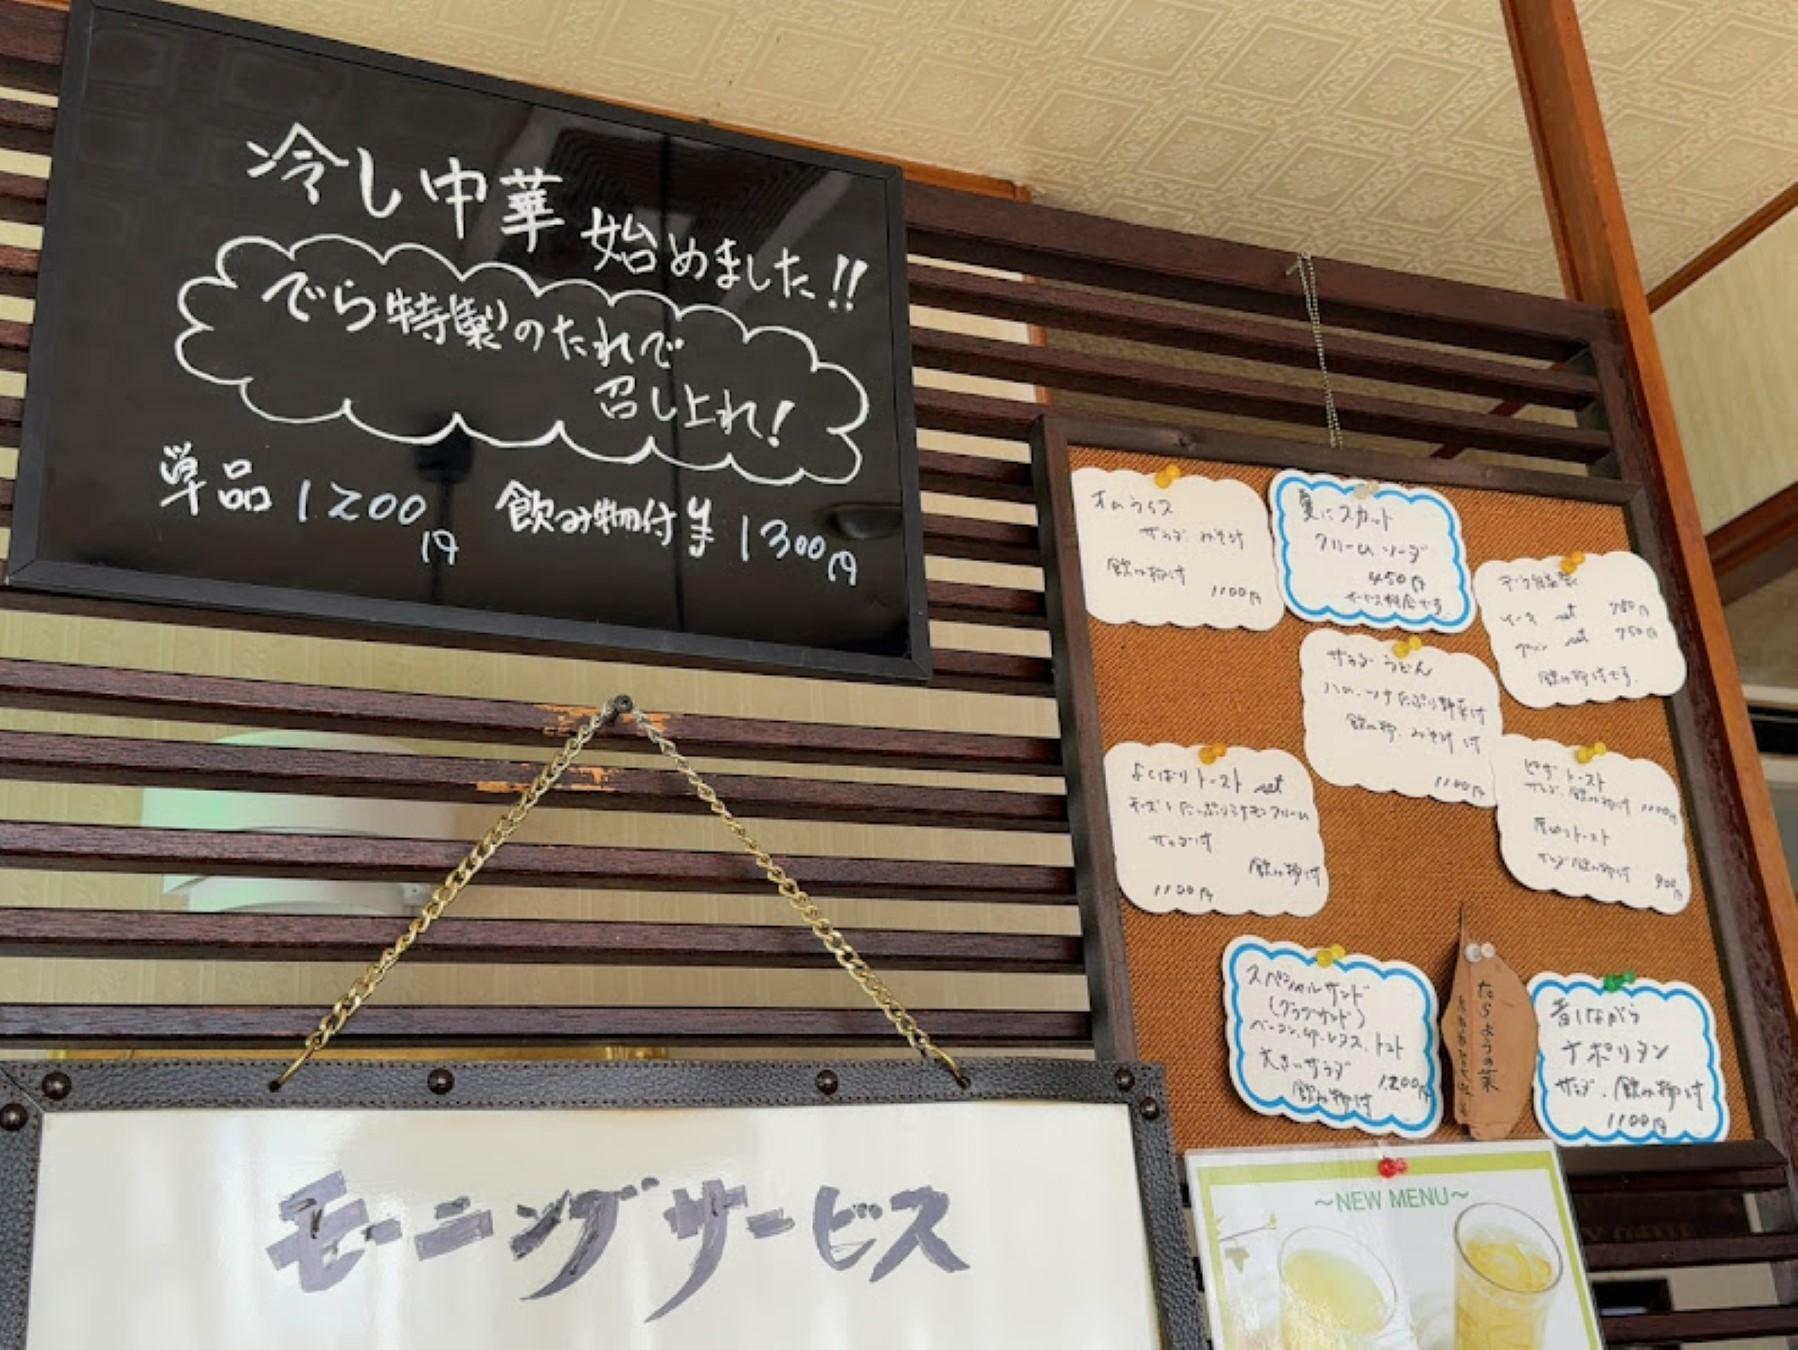 冷し中華
始めました!!
でら特製のたれで
召し上れ!
単品 1200円
飲み物付 ¥1300円
オムライス
サラダ みそ汁
飲み物付
1100円
夏にスカット
クリームソーダ
450円
サービス料金です
set 750円
飲み物付です
サラダうどん
ハム、ツナたっぷり野菜付
飲み物、みそ汁付
1100円
よくばりトースト set
サラダ付
飲み物付
1100円
ピザトースト
サラダ、飲み物付 1100円
厚切トースト
サラダ飲み物付 900円
スペシャルサンド
(クラブサンド)
ベーコン、卵、レタス、トマト
大きいサラダ 1200円
飲み物付
たらようの葉
昔しながら
ナポリタン
サラダ、飲み物付
1100円
モーニングサービス
~NEW MENU~